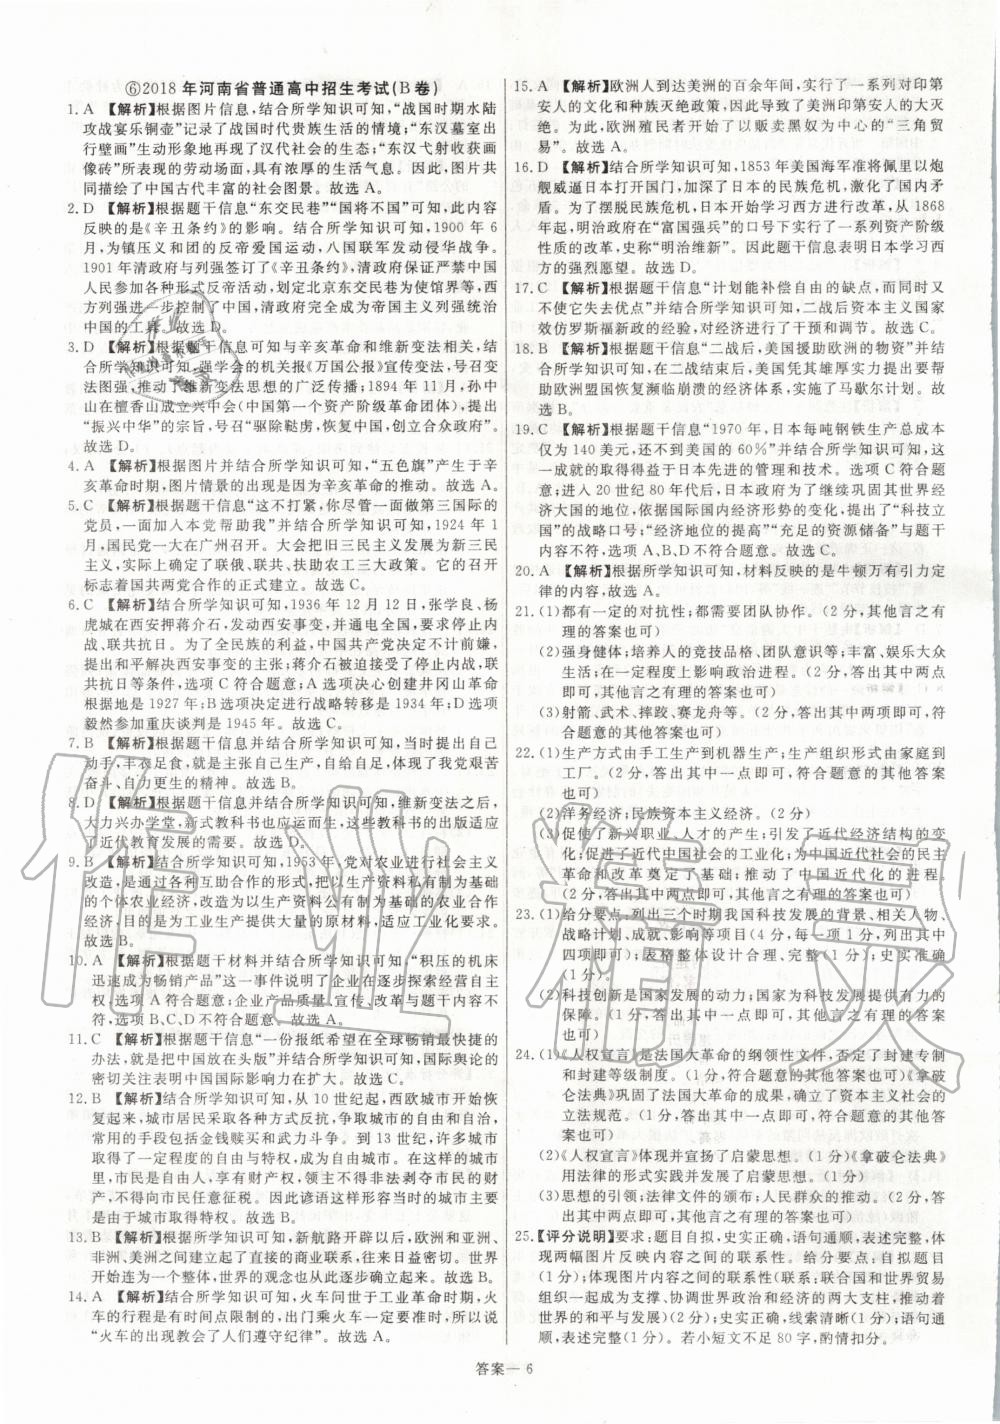 ⑥2018年河南省普通高中招生考试(B卷)
1. A 【解析】根据图片信息,结合所学知识可知,“战国时期水陆
攻战宴乐铜壶”记录了战国时代贵族生活的情境;“东汉墓室出
行壁画”生动形象地再现了汉代社会的生态;“东汉弋射收获画
像砖”所表现的劳动场面,具有浓厚的生活气息。因此,图片共
同描绘了中国古代丰富的社会图景。故选A。
2. D 【解析】根据题干信息“东交民巷”“国将不国”可知,此内容
反映的是《辛丑条约》的影响。结合所学知识可知,1900年6
月,为镇压义和团的反帝爱国运动,八国联军发动侵华战争。
1901年清政府与列强签订了《辛丑条约》,清政府保证严禁中国
人民参加各种形式反帝活动,划定北京东交民巷为使馆界等,西
方列强进一步控制了中国,清政府完全成为帝国主义列强统治
中国的工具。故选D。
3. D 【解析】根据题干可知与辛亥革命和维新变法相关,结合
所学知识可知,强学会的机关报《万国公报》宣传变法,号召变
法图强,推动了维新变法思想的广泛传播;1894年11月,孙中
山在檀香山成立兴中会(中国第一个资产阶级革命团体),提出
“振兴中华”的宗旨,号召“驱除鞑虏,恢复中国,创立合众政府”。
故选D。
4. A 【解析】根据图片并结合所学知识可知,“五色旗”产生于辛
亥革命时期,图片情景的出现是因为辛亥革命的推动。故选A。
5. C 【解析】根据题干信息“这不打紧,你尽管一面做第三国际的
党员,一面加入本党帮助我”并结合所学知识可知,1924年1
月,国民党一大在广州召开。大会把旧三民主义发展为新三
民主义,实际上确定了联俄、联共、扶助农工三大政策。它的召开
标志着国共两党合作的正式建立。故选C。
6. C 【解析】结合所学知识可知,1936年12月12日,张学良、杨
虎城在西安扣押蒋介石,发动西安事变,并通电全国,要求停止内
战、联共抗日。为了全民族的利益,中国共产党决定不计前嫌,
提出和平解决西安事变的主张;蒋介石被迫接受了停止内战,联
共抗日等条件,选项C符合题意;A选项决心创建井冈山革命
根据地是1927年;B选项决定进行战略转移是1934年;D选项
毅然参加重庆谈判是1945年。故选C。
7. B 【解析】根据题干信息并结合所学知识可知,当时提出自己
动手,丰衣足食,就是主张自己生产,自己解决困难,体现了我党艰苦
奋斗、自力更生的精神。故选B。
8. D 【解析】根据题干信息并结合所学知识可知,维新变法之后,
大力兴办学堂,新式教科书也应运而生,这些教科书的出版适应
了近代教育发展的需要。故选D。
9. B 【解析】结合所学知识可知,1953年,党对农业进行社会主义
改造,是通过各种互助合作的形式,把以生产资料私有制为基础
的个体农业经济,改造为以生产资料公有制为基础的农业合作
经济,目的是为工业生产提供大量的原材料,适应工业化要求。
故选B。
10. A 【解析】根据题干材料并结合所学知识可知,“积压的机床
迅速成为畅销产品”这一事件说明了企业在逐步探索经营自主
权,选项A符合题意;企业产品质量、宣传、改革开放与题干内容
不符,选项B、C、D不符合题意。故选A。
11. C 【解析】根据题干信息“一份报纸希望在全球畅销最快捷的
办法,就是把中国放在头版”并结合所学知识可知,国际舆论的
密切关注表明中国国际影响力在扩大。故选C。
12. B 【解析】结合所学知识可知,从10世纪起,西欧城市开始恢
复起来,城市居民采取各种方式反抗,争取城市的自由和自治,
常用的手段包括金钱赎买和武力斗争。到13世纪,许多城市
取得了一定的自由与特权,成为自由城市。在这样的城市里,
市民成为自由人,享有财产权,领主不得非法剥夺市民的财
产,不得向市民任意征税。因此谚语这样形容当时的城市主要
是由于城市取得特权。故选B。
13. B 【解析】结合所学知识可知,新航路开辟以后,欧洲和亚洲、
非洲、美洲之间建立起了直接的商业联系,往来日益密切。世界
开始连为一个整体,世界的观念也从此逐步确立起来。故选B。
14. A 【解析】结合所学知识可知,火车问世于工业革命时期,火
车的行程是有时间点限制的,出门乘火车一定要守时,所以说
“火车的出现教会了人们遵守纪律”。故选A。
15. A 【解析】欧洲人到达美洲的百余年间,实行了一系列对印第
安人的文化和种族灭绝政策,因此导致了美洲印第安人的大灭
绝。为此,欧洲殖民者开始了以贩卖黑奴为中心的“三角贸
易”。故选A。
16. D 【解析】结合所学知识可知,1853年美国海军准将佩里以炮
舰威逼日本打开国门,加深了日本的民族危机,激化了国内矛
盾。为了摆脱民族危机,日本开始学习西方进行改革,从1868
年起,明治政府在“富国强兵”的口号下实行了一系列资产阶级
性质的改革,史称“明治维新”。因此题干信息表明日本学习西
方的强烈愿望。故选D。
17. C 【解析】根据题干信息“计划能补偿自由的缺点,而同时又
不使它失去优点”并结合所学知识可知,二战后资本主义国家
效仿罗斯福新政的经验,对经济进行了干预和调节。故选C。
18. B 【解析】根据题干信息“二战后,美国援助欧洲的物资”并结
合所学知识可知,在二战结束后,美国凭其雄厚实力提出要帮
助欧洲盟国恢复濒临崩溃的经济体系,实施了马歇尔计划。故
选B。
19. C 【解析】根据题干信息“1970年,日本每吨钢铁生产总成本
仅为140美元,还不到美国的60%”并结合所学知识可知,这
一成就的取得得益于日本先进的管理和技术。选项C符合题
意;进入20世纪80年代后,日本政府为了继续巩固其世界经济
大国的地位,依据国际国内经济形势的变化,提出了“科技立
国”的战略口号;“经济地位的提高”“充足的资源储备”与题干
内容不符,选项A、B、D不符合题意。故选C。
20. A 【解析】根据所学知识可知,材料反映的是牛顿万有引力定
律的内容。故选A。
21. (1)都有一定的对抗性;都需要团队协作。(2分,其他言之有
理的答案也可)
(2)强身健体;培养人的竞技品格、团队意识等;丰富、娱乐大众
生活;在一定程度上影响政治进程。(2分,答出其中两点即
可,其他言之有理的答案也可)
(3)射箭、武术、摔跤、赛龙舟等。(2分,答出其中两项即可,符
合题意的其他答案也可)
22. (1)生产方式由手工生产到机器生产;生产组织形式由家庭到
工厂。(2分,答出其中一点即可,符合题意的其他答案
也可)
(2)洋务经济;民族资本主义经济。(2分)
(3)促使了新兴职业、人才的产生;引发了近代经济结构的变
化;促进了近代中国社会的工业化;为中国近代社会的民主
革命和改革奠定了基础;推动了中国近代化的进程。
(2分,答出其中两点即可,其他言之有理的答案也可)
23. (1)给分要点:列出三个时期我国科技发展的背景、相关人物、
战略计划、成就、影响等项目(4分,每项1分,列出其中
四项即可);表格整体设计合理、完整(1分);史实准确
(1分)。
(2)科技创新是国家发展的动力;国家为科技发展提供有力的
保障。(2分,答出其中一点即可,符合题意的其他答案
也可)
24. (1)《人权宣言》是法国大革命的纲领性文件,否定了封建专制
和封建等级制度。(1分,符合题意的其他答案也可)《拿破
仑法典》巩固了法国大革命的成果,确立了资本主义社会的
立法规范。(1分,答出其中一点即可,符合题意的其他答案
也可)
(2)《人权宣言》体现并宣扬了启蒙思想。(1分)《拿破仑法典》
用法律的形式实践并发展了启蒙思想。(1分)
(3)思想的引领;法律文件的颁布;人民群众的推动。(2分,答
出其中两点即可,其他言之有理的答案也可)
25. 【评分说明】要求:题目自拟,史实正确,语句通顺,表述完整,体
现两幅图片反映内容之间的联系性。给分要点:自拟题目
(1分);体现图片内容之间的联系性(联系:联合国和世界贸易
组织成为支撑、协调世界政治和经济的两大支柱;推动着
世界的和平与发展)(2分);史实正确,线索清晰(1分);语句通
顺,表述完整(1分)。若小短文不足80字,酌情扣分。
答案—6
作业精灵